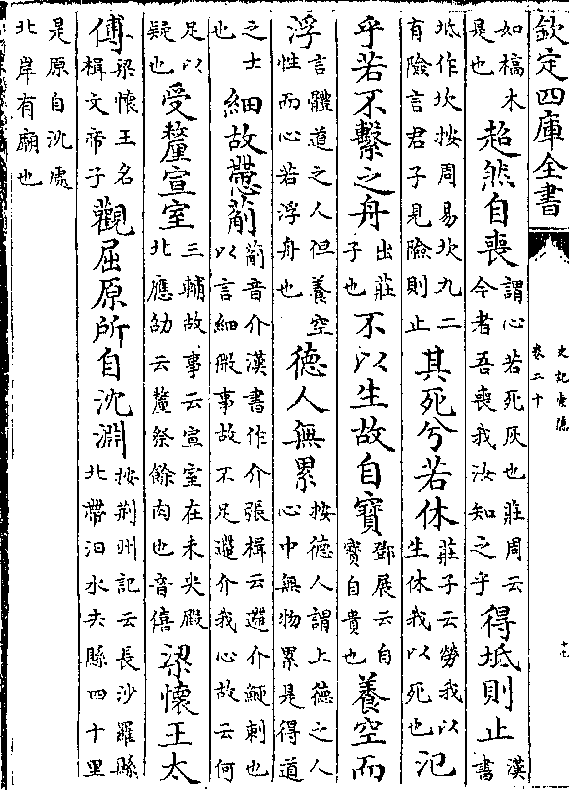 欽定四庫全書
史記索隱
卷二十
十七
如槁木
是也
超然自喪
謂心若死灰也莊周云
今者吾喪我汝知之乎
得坻則止
漢
書
坻作坎按周易坎九二
有險言君子見險則止
其死兮若休
莊子云勞我以
生休我以死也
氾
乎若不繫之舟
出莊
子也
不以生故自寶
鄧展云自
寶自貴也
養空而
浮
言體道之人但養空
性而心若浮舟也
德人無累
按德人謂上德之人
心中無物累是得道
之士
也
細故慸葪
葪音介漢書作介張揖云遰介鯁刺也
以言細微事故不足遰介我心故云何
足以
疑也
受釐宣室
三輔故事云宣室在未央殿
北應劭云釐祭餘肉也音僖
梁懷王太
傅
梁懷王名
楫文帝子
觀屈原所自沈淵
按荆州記云長沙羅縣
北帶汨水去縣四十里
是原自沈處
北岸有廟也